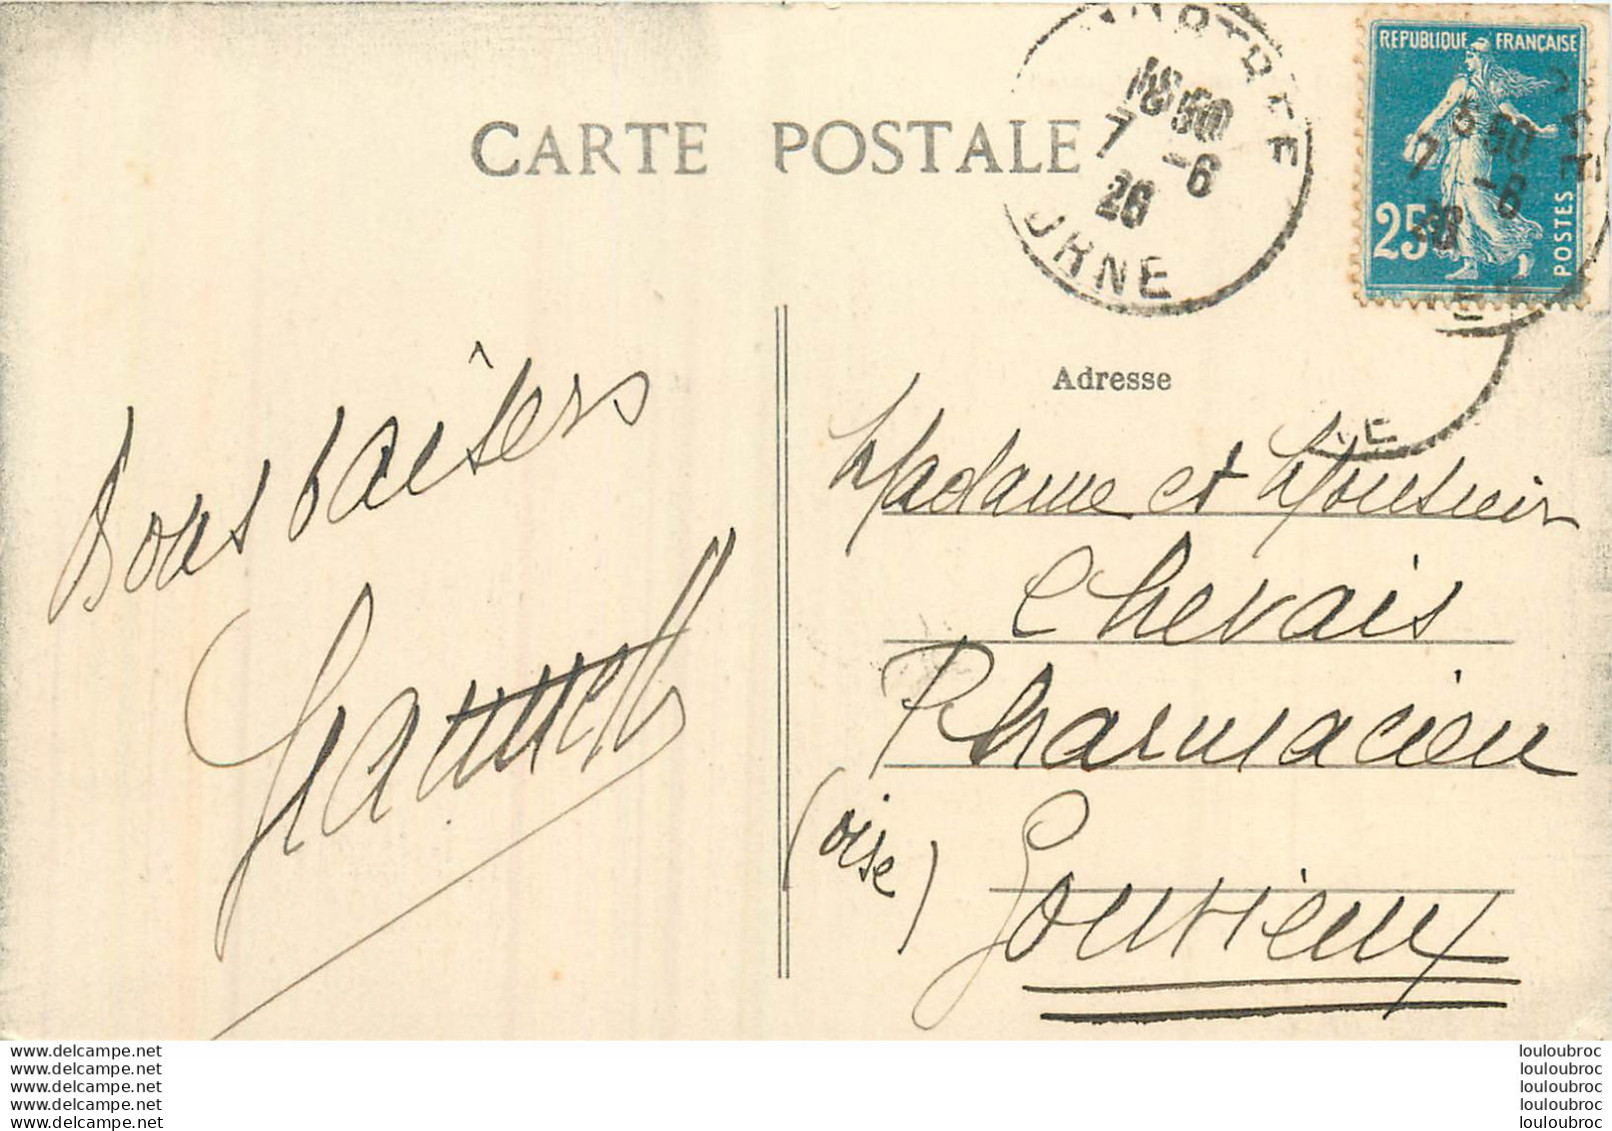 CARTE POSTALE
18 50
7 -6
26
ORNE
REPUBLIQUE FRANÇAISE
50
7 -6
26
25
POSTES
Adresse
Bons baisers
Madame et Monsieur
Chevais
Pharmacien
(Oise) Gouvieux
www.delcampe.net
www.delcampe.net
www.delcampe.net
www.delcampe.net
www.delcampe.net
louloubroc
louloubroc
louloubroc
louloubroc
louloubroc